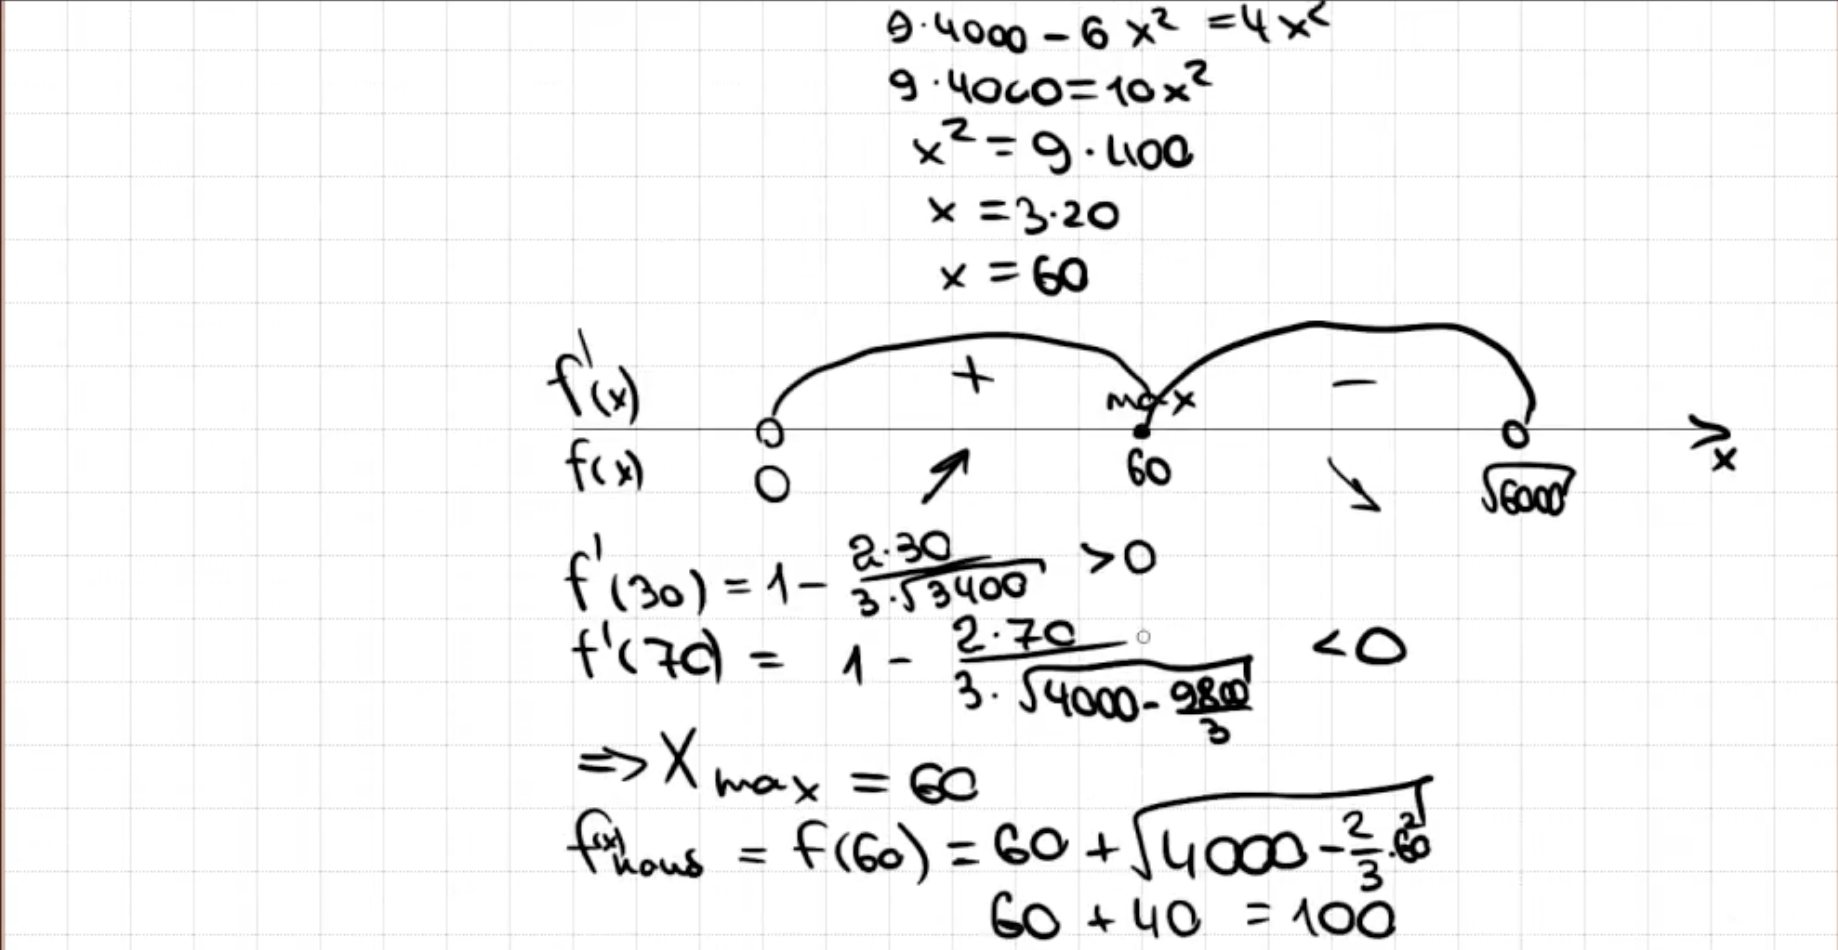 9·4000 - 6x² = 4x²
9·4000 = 10x²
x² = 9·400
x = 3·20
x = 60
f'(x) + max -
f(x) 0 60 √6000 x
f'(30) = 1 - 2·30/(3·√3400) > 0
f'(70) = 1 - 2·70/(3·√(4000 - 9800/3)) < 0
⇒ x max = 60
f(x) наиб = f(60) = 60 + √(4000 - 2/3·60²)
60 + 40 = 100